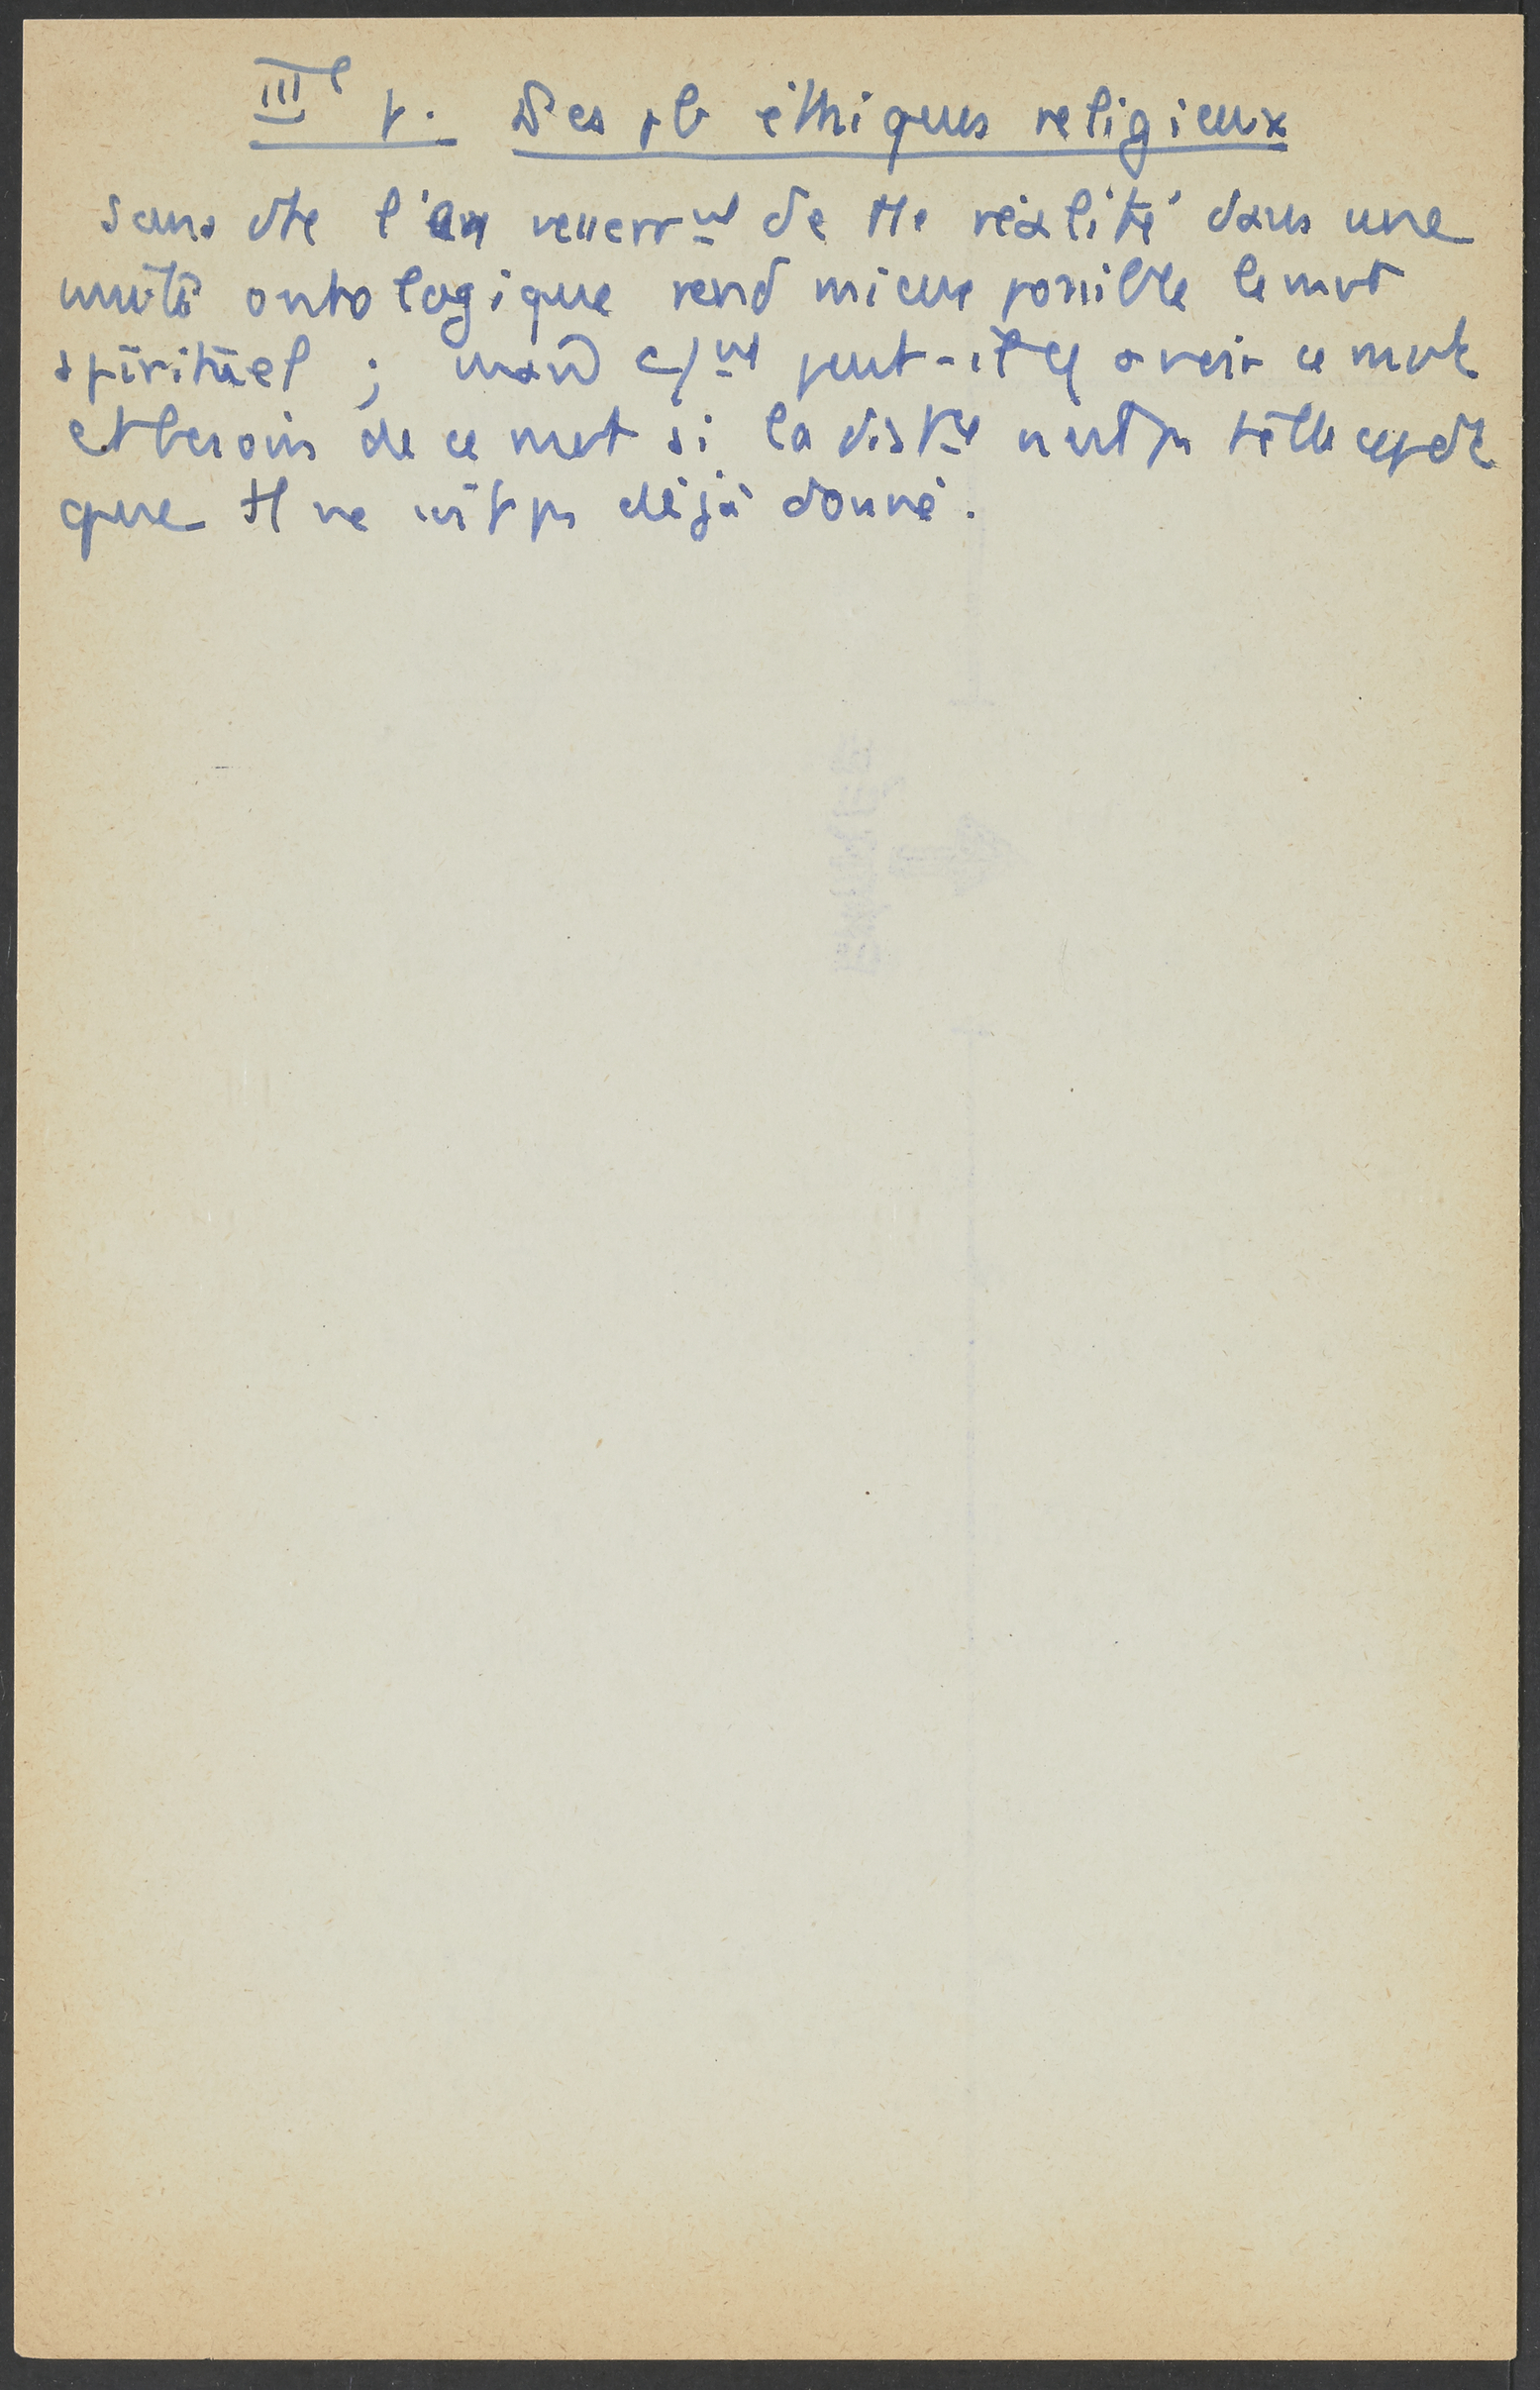 IIIe p. Des pb éthiques religieux
Sans dte l'en resserrnt de tte réalité dans une
unité ontologique rend mieux possible le mvt
spirituel ; mais c/nt peut-il y avoir ce mvt
et besoin de ce mvt si la distce n'est ps telle
que tt ne soit ps déjà donné.